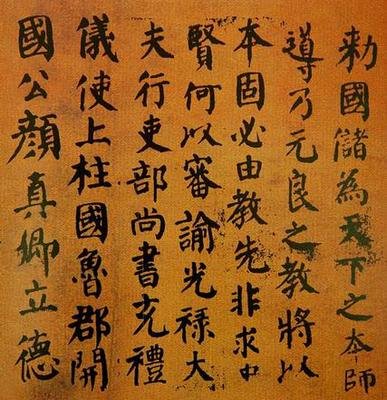 勑國儲為天下之本師
導乃元良之教將以
本固必由教先非求忠
賢何以審諭光祿大
夫行吏部尚書充禮
儀使上柱國魯郡開
國公顏真卿立德